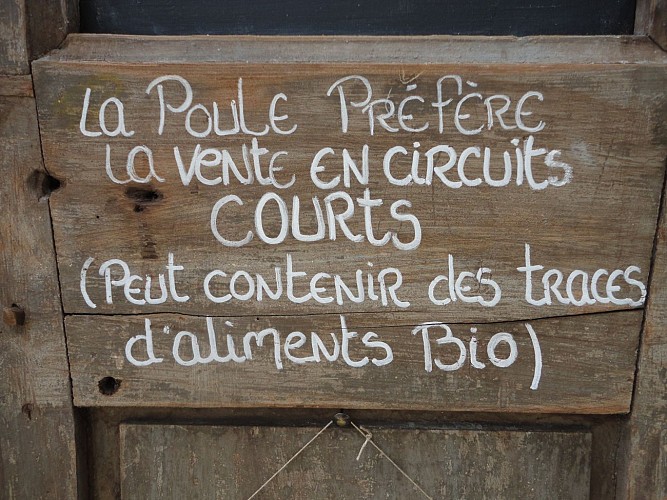 La Poule Préfère
La vente en circuits
courts
(Peut contenir des traces
d'aliments Bio)